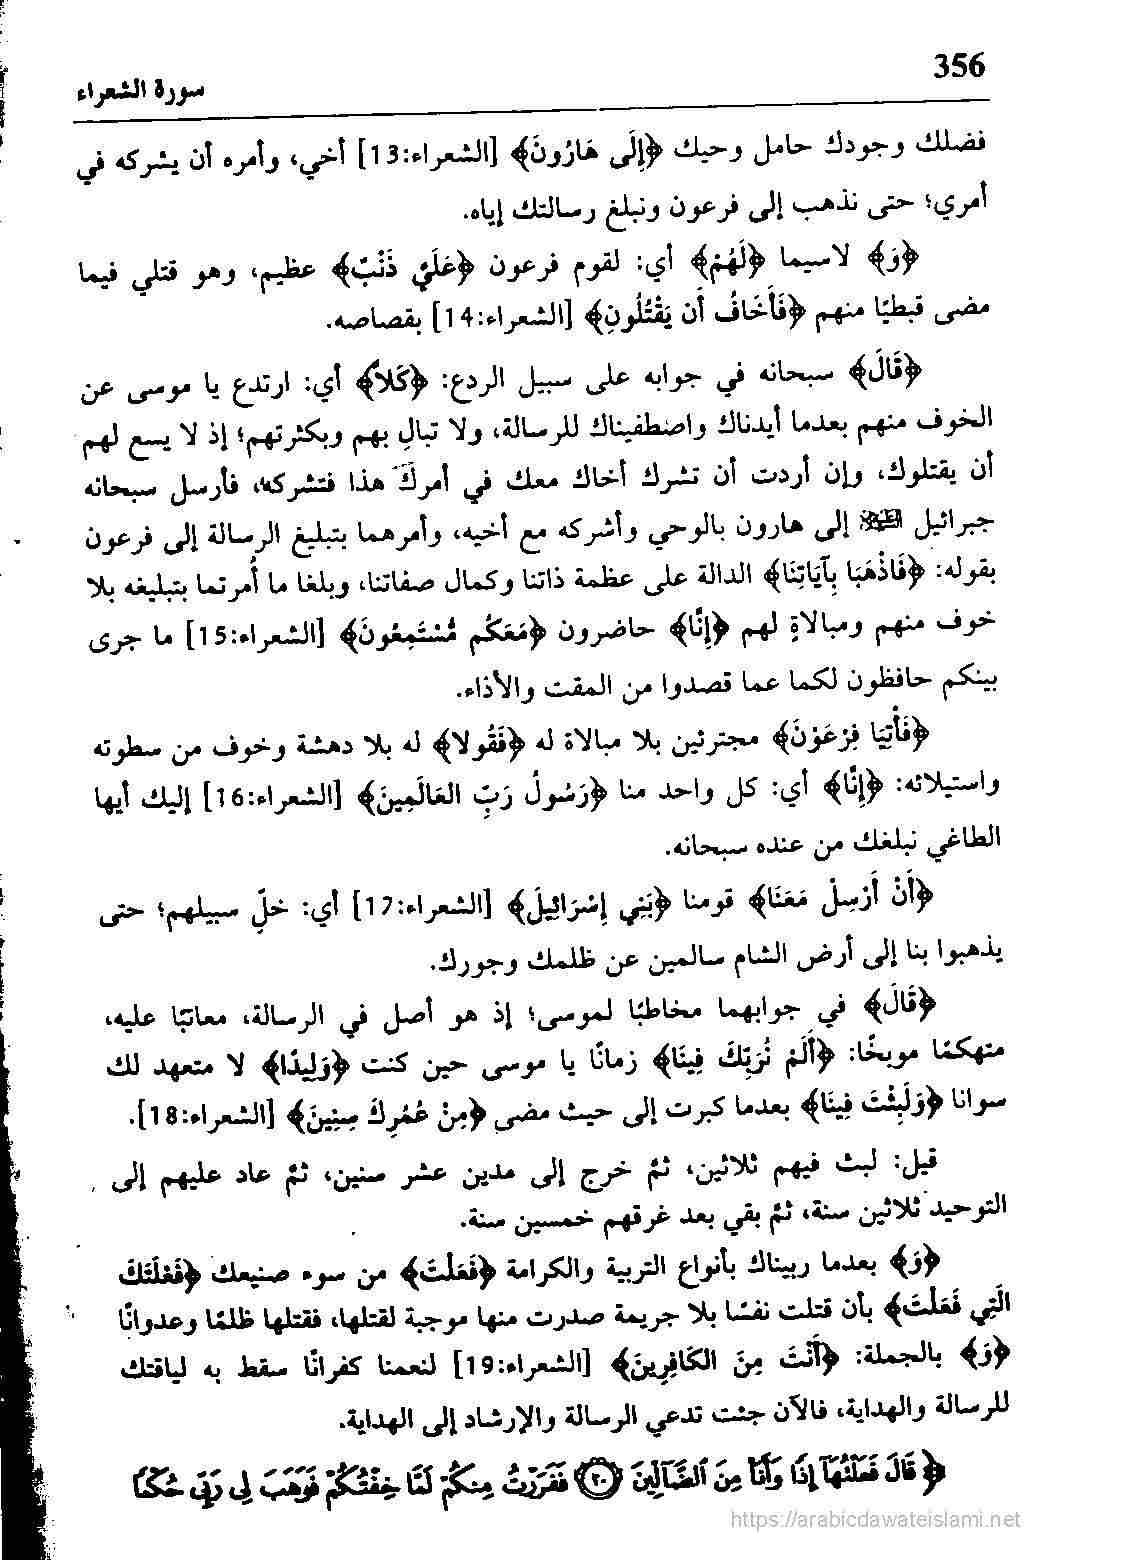 356
سورة الشعراء
فضلك وجودك حامل وحيك ﴿إِلَى هَارُونَ﴾ [الشعراء:13] أخي، وأمره أن يشركه في
أمري؛ حتى نذهب إلى فرعون ونبلغ رسالتك إياه.
﴿وَ﴾ لاسيما ﴿لَهُمْ﴾ أي: لقوم فرعون ﴿عَلَيَّ ذَنْبٌ﴾ عظيم، وهو قتلي فيما
مضى قبطيًا منهم ﴿فَأَخَافُ أَن يَقْتُلُونِ﴾ [الشعراء:14] بقصاصه.
﴿قَالَ﴾ سبحانه في جوابه على سبيل الردع: ﴿كَلاَّ﴾ أي: ارتدع يا موسى عن
الخوف منهم بعدما أيدناك واصطفيناك للرسالة، ولا تبالِ بهم وبكثرتهم؛ إذ لا يسع لهم
أن يقتلوك، وإن أردت أن تشرك أخاك معك في أمرك هذا فتشركه، فأرسل سبحانه
جبرائيل إلى هارون بالوحي وأشركه مع أخيه، وأمرهما بتبليغ الرسالة إلى فرعون
بقوله: ﴿فَاذْهَبَا بِآيَاتِنَا﴾ الدالة على عظمة ذاتنا وكمال صفاتنا، وبلغا ما أُمرتما بتبليغه بلا
خوف منهم ومبالاةٍ لهم ﴿إِنَّا﴾ حاضرون ﴿مَعَكُم مُّسْتَمِعُونَ﴾ [الشعراء:15] ما جرى
بينكم حافظون لكما عما قصدوا من المقت والأذاء.
﴿فَأْتِيَا فِرْعَوْنَ﴾ مجترئين بلا مبالاة له ﴿فَقُولا﴾ له بلا دهشة وخوف من سطوته
واستيلائه: ﴿إِنَّا﴾ أي: كل واحد منا ﴿رَسُولُ رَبِّ العَالَمِينَ﴾ [الشعراء:16] إليك أيها
الطاغي نبلغك من عنده سبحانه.
﴿أَنْ أَرْسِلْ مَعَنَا﴾ قومنا ﴿بَنِي إِسْرَائِيلَ﴾ [الشعراء:17] أي: خلِّ سبيلهم؛ حتى
يذهبوا بنا إلى أرض الشام سالمين عن ظلمك وجورك.
﴿قَالَ﴾ في جوابهما مخاطبًا لموسى؛ إذ هو أصل في الرسالة، معاتبًا عليه،
متهكمًا موبخًا: ﴿أَلَمْ نُرَبِّكَ فِينَا﴾ زمانًا يا موسى حين كنت ﴿وَلِيدًا﴾ لا متعهد لك
سوانا ﴿وَلَبِثْتَ فِينَا﴾ بعدما كبرت إلى حيث مضى ﴿مِنْ عُمُرِكَ سِنِينَ﴾ [الشعراء:18].
قيل: لبث فيهم ثلاثين، ثمَّ خرج إلى مدين عشر سنين، ثمَّ عاد عليهم إلى
التوحيد ثلاثين سنة، ثمَّ بقي بعد غرقهم خمسين سنة.
﴿وَ﴾ بعدما ربيناك بأنواع التربية والكرامة ﴿فَعَلْتَ﴾ من سوء صنيعك ﴿فَعْلَتَكَ
الَّتِي فَعَلْتَ﴾ بأن قتلت نفسًا بلا جريمة صدرت منها موجبة لقتلها، فقتلها ظلمًا وعدوانًا
﴿وَ﴾ بالجملة: ﴿أَنْتَ مِنَ الكَافِرِينَ﴾ [الشعراء:19] لنعمنا كفرانًا سقط به لياقتك
للرسالة والهداية، فالآن جئت تدعي الرسالة والإرشاد إلى الهداية.
﴿قَالَ فَعَلْتُهَآ إِذًا وَأَنَاْ مِنَ ٱلضَّآلِّينَ ٢٠ فَفَرَرْتُ مِنكُمْ لَمَّا خِفْتُكُمْ فَوَهَبَ لِي رَبِّى حُكْمًا
https://arabicdawateislami.net